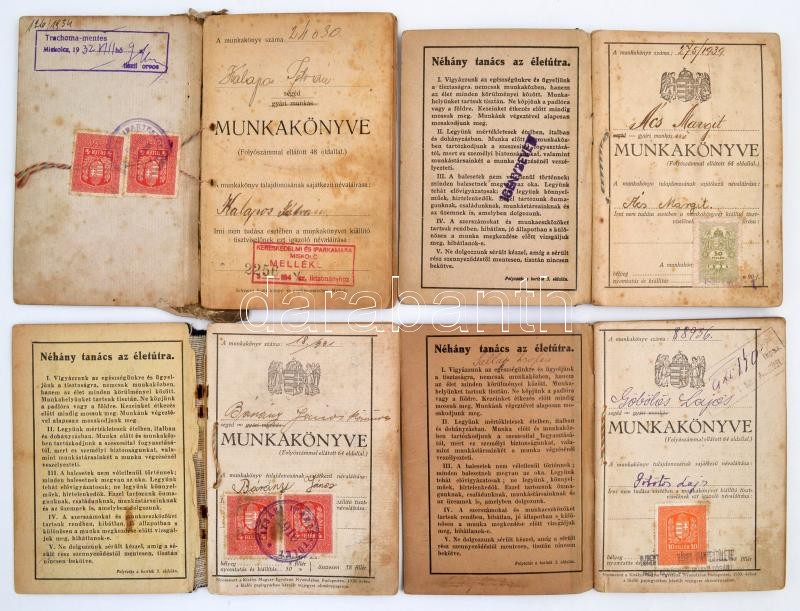 126/1934
Trachoma-mentes
Miskolc, 1932 VIII hó 9-én
tiszti orvos
A munkakönyv száma: 24030.
Kalapos István
segéd
gyári munkás
MUNKAKÖNYVE
(Folyószámmal ellátott 48 oldallal.)
A munkakönyv tulajdonosának sajátkezű névaláírása:
Kalapos István
Irni nem tudása esetében a munkakönyvet kiállító
tisztviselőnek ezt igazoló névaláírása:
KERESKEDELMI ÉS IPARKAMARA
MISKOLC
MELLÉKLET
2256
sz. iktatmányhoz
Néhány tanács az életútra.
I. Vigyázzunk az egészségünkre és ügyeljünk
a tisztaságra, nemcsak munkaközben, hanem
az élet minden körülményei között. Munka-
helyünket tartsuk tisztán. Ne köpjünk a padlóra
vagy a földre. Kezeinket étkezés előtt mindig
mossuk meg. Munkánk végeztével alaposan
mosakodjunk meg.
II. Legyünk mértékletesek ételben, italban
és dohányzásban. Munka előtt és munkaközben
tartózkodjunk a szeszesital fogyasztásá-
tól, mert ez személyi biztonságunkat, valamint
munkatársainkét és a munka menetét is veszé-
lyezteti.
III. A balesetek nem véletlenül történnek;
minden balesetnek megvan az oka. Legyünk
tehát elővigyázatosak; ne legyünk könnyel-
műek, hirtelenkedők. Ezzel tartozunk önma-
gunknak, családunknak, munkatársainknak és
az üzemnek, amelyben dolgozunk.
IV. A szerszámokat és munkaeszközöket
tartsuk rendben, hibátlan, jó állapotban s
különösen a munka megkezdése előtt vizsgáljuk
meg, hibátlanok-e.
V. Ne dolgozzunk sérült kézzel, amíg a sérült
rész szennyeződéstől mentesen, tisztán nincsen
bekötve.
Folytatás a boríték 3. oldalán.
IGÉNYBEVÉVE
A munkakönyv száma: 275/1939
Ács Margit
segéd
gyári munkás
MUNKAKÖNYVE
(Folyószámmal ellátott 64 oldallal.)
A munkakönyv tulajdonosának sajátkezű névaláírása:
Ács Margit.
Irni nem tudása esetében a munkakönyvet kiállító tiszt-
viselőnek ezt igazoló névaláírása:
50
bélyeg
nyomtatás és kiállítás
darabanth
Néhány tanács az életútra.
I. Vigyázzunk az egészségünkre és ügyel-
jünk a tisztaságra, nemcsak munkaközben,
hanem az élet minden körülményei között.
Munkahelyünket tartsuk tisztán. Ne köpjünk a
padlóra vagy a földre. Kezeinket étkezés
előtt mindig mossuk meg. Munkánk végezté-
vel alaposan mosakodjunk meg.
II. Legyünk mértékletesek ételben, italban
és dohányzásban. Munka előtt és munkaközben
tartózkodjunk a szeszesital fogyasztásá-
tól, mert ez személyi biztonságunkat, vala-
mint munkatársainkét és a munka menetét is
veszélyezteti.
III. A balesetek nem véletlenül történnek;
minden balesetnek megvan az oka. Legyünk
tehát elővigyázatosak; ne legyünk könnyel-
műek, hirtelenkedők. Ezzel tartozunk önma-
gunknak, családunknak, munkatársainknak
és az üzemnek, amelyben dolgozunk.
IV. A szerszámokat és munkaeszközöket
tartsuk rendben, hibátlan, jó állapotban s
különösen a munka megkezdése előtt vizsgál-
juk meg, hibátlanok-e.
V. Ne dolgozzunk sérült kézzel, amíg a sé-
rült rész szennyeződéstől mentesen, tisztán
nincsen bekötve.
Folytatás a boríték 3. oldalán.
A munkakönyv száma:
Barányi János
segéd
MUNKAKÖNYVE
(Folyószámmal ellátott 64 oldallal.)
A munkakönyv tulajdonosának sajátkezű névaláírása:
Barányi János
bélyeg
nyomtatás és kiállítás
összesen 38 fillér
Néhány tanács az életútra.
I. Vigyázzunk az egészségünkre és ügyel-
jünk a tisztaságra, nemcsak munkaközben,
hanem az élet minden körülményei között.
Munkahelyünket tartsuk tisztán. Ne köpjünk
a padlóra vagy a földre. Kezeinket étkezés
előtt mindig mossuk meg. Munkánk végezté-
vel alaposan mosakodjunk meg.
II. Legyünk mértékletesek ételben, italban
és dohányzásban. Munka előtt és munkaközben
tartózkodjunk a szeszesital fogyasztásá-
tól, mert ez személyi biztonságunkat, vala-
mint munkatársainkét és a munka menetét is
veszélyezteti.
III. A balesetek nem véletlenül történnek;
minden balesetnek megvan az oka. Legyünk
tehát elővigyázatosak; ne legyünk könnyel-
műek, hirtelenkedők. Ezzel tartozunk önma-
gunknak, családunknak, munkatársainknak
és az üzemnek, amelyben dolgozunk.
IV. A szerszámokat és munkaeszközöket
tartsuk rendben, hibátlan, jó állapotban s
különösen a munka megkezdése előtt vizsgál-
juk meg, hibátlanok-e.
V. Ne dolgozzunk sérült kézzel, amíg a sé-
rült rész szennyeződéstől mentesen, tisztán
nincsen bekötve.
Folytatás a boríték 3. oldalán.
A munkakönyv száma: 88936.
Göbölös Lajos
segéd
MUNKAKÖNYVE
(Folyószámmal ellátott 64 oldallal.)
A munkakönyv tulajdonosának sajátkezű névaláírása:
Irni nem tudása esetében a munkakönyvet kiállító tiszt-
viselőnek ezt igazoló névaláírása:
10
bélyeg
nyomtatás és kiállítás